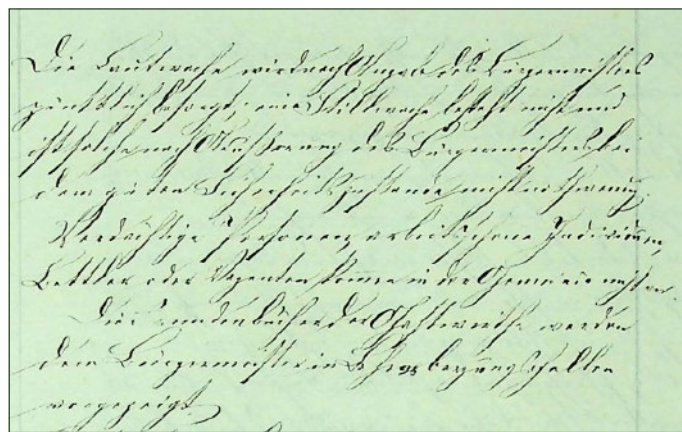 Die Lautwache wird nach Angabe des Bürgermeisters
pünktlich besorgt; eine Stillwache besteht nicht und
ist solche nach Äußerung des Bürgermeisters bei
dem guten Sicherheitszustande nicht nothwendig.
Verdächtige Personen, arbeitsscheue Individuen,
Bettler oder Vaganten kommen in der Gemeinde nicht vor.
Die Fremdenbücher der Gastwirthe werden
dem Bürgermeister in Beherbergungsfällen
vorgezeigt.